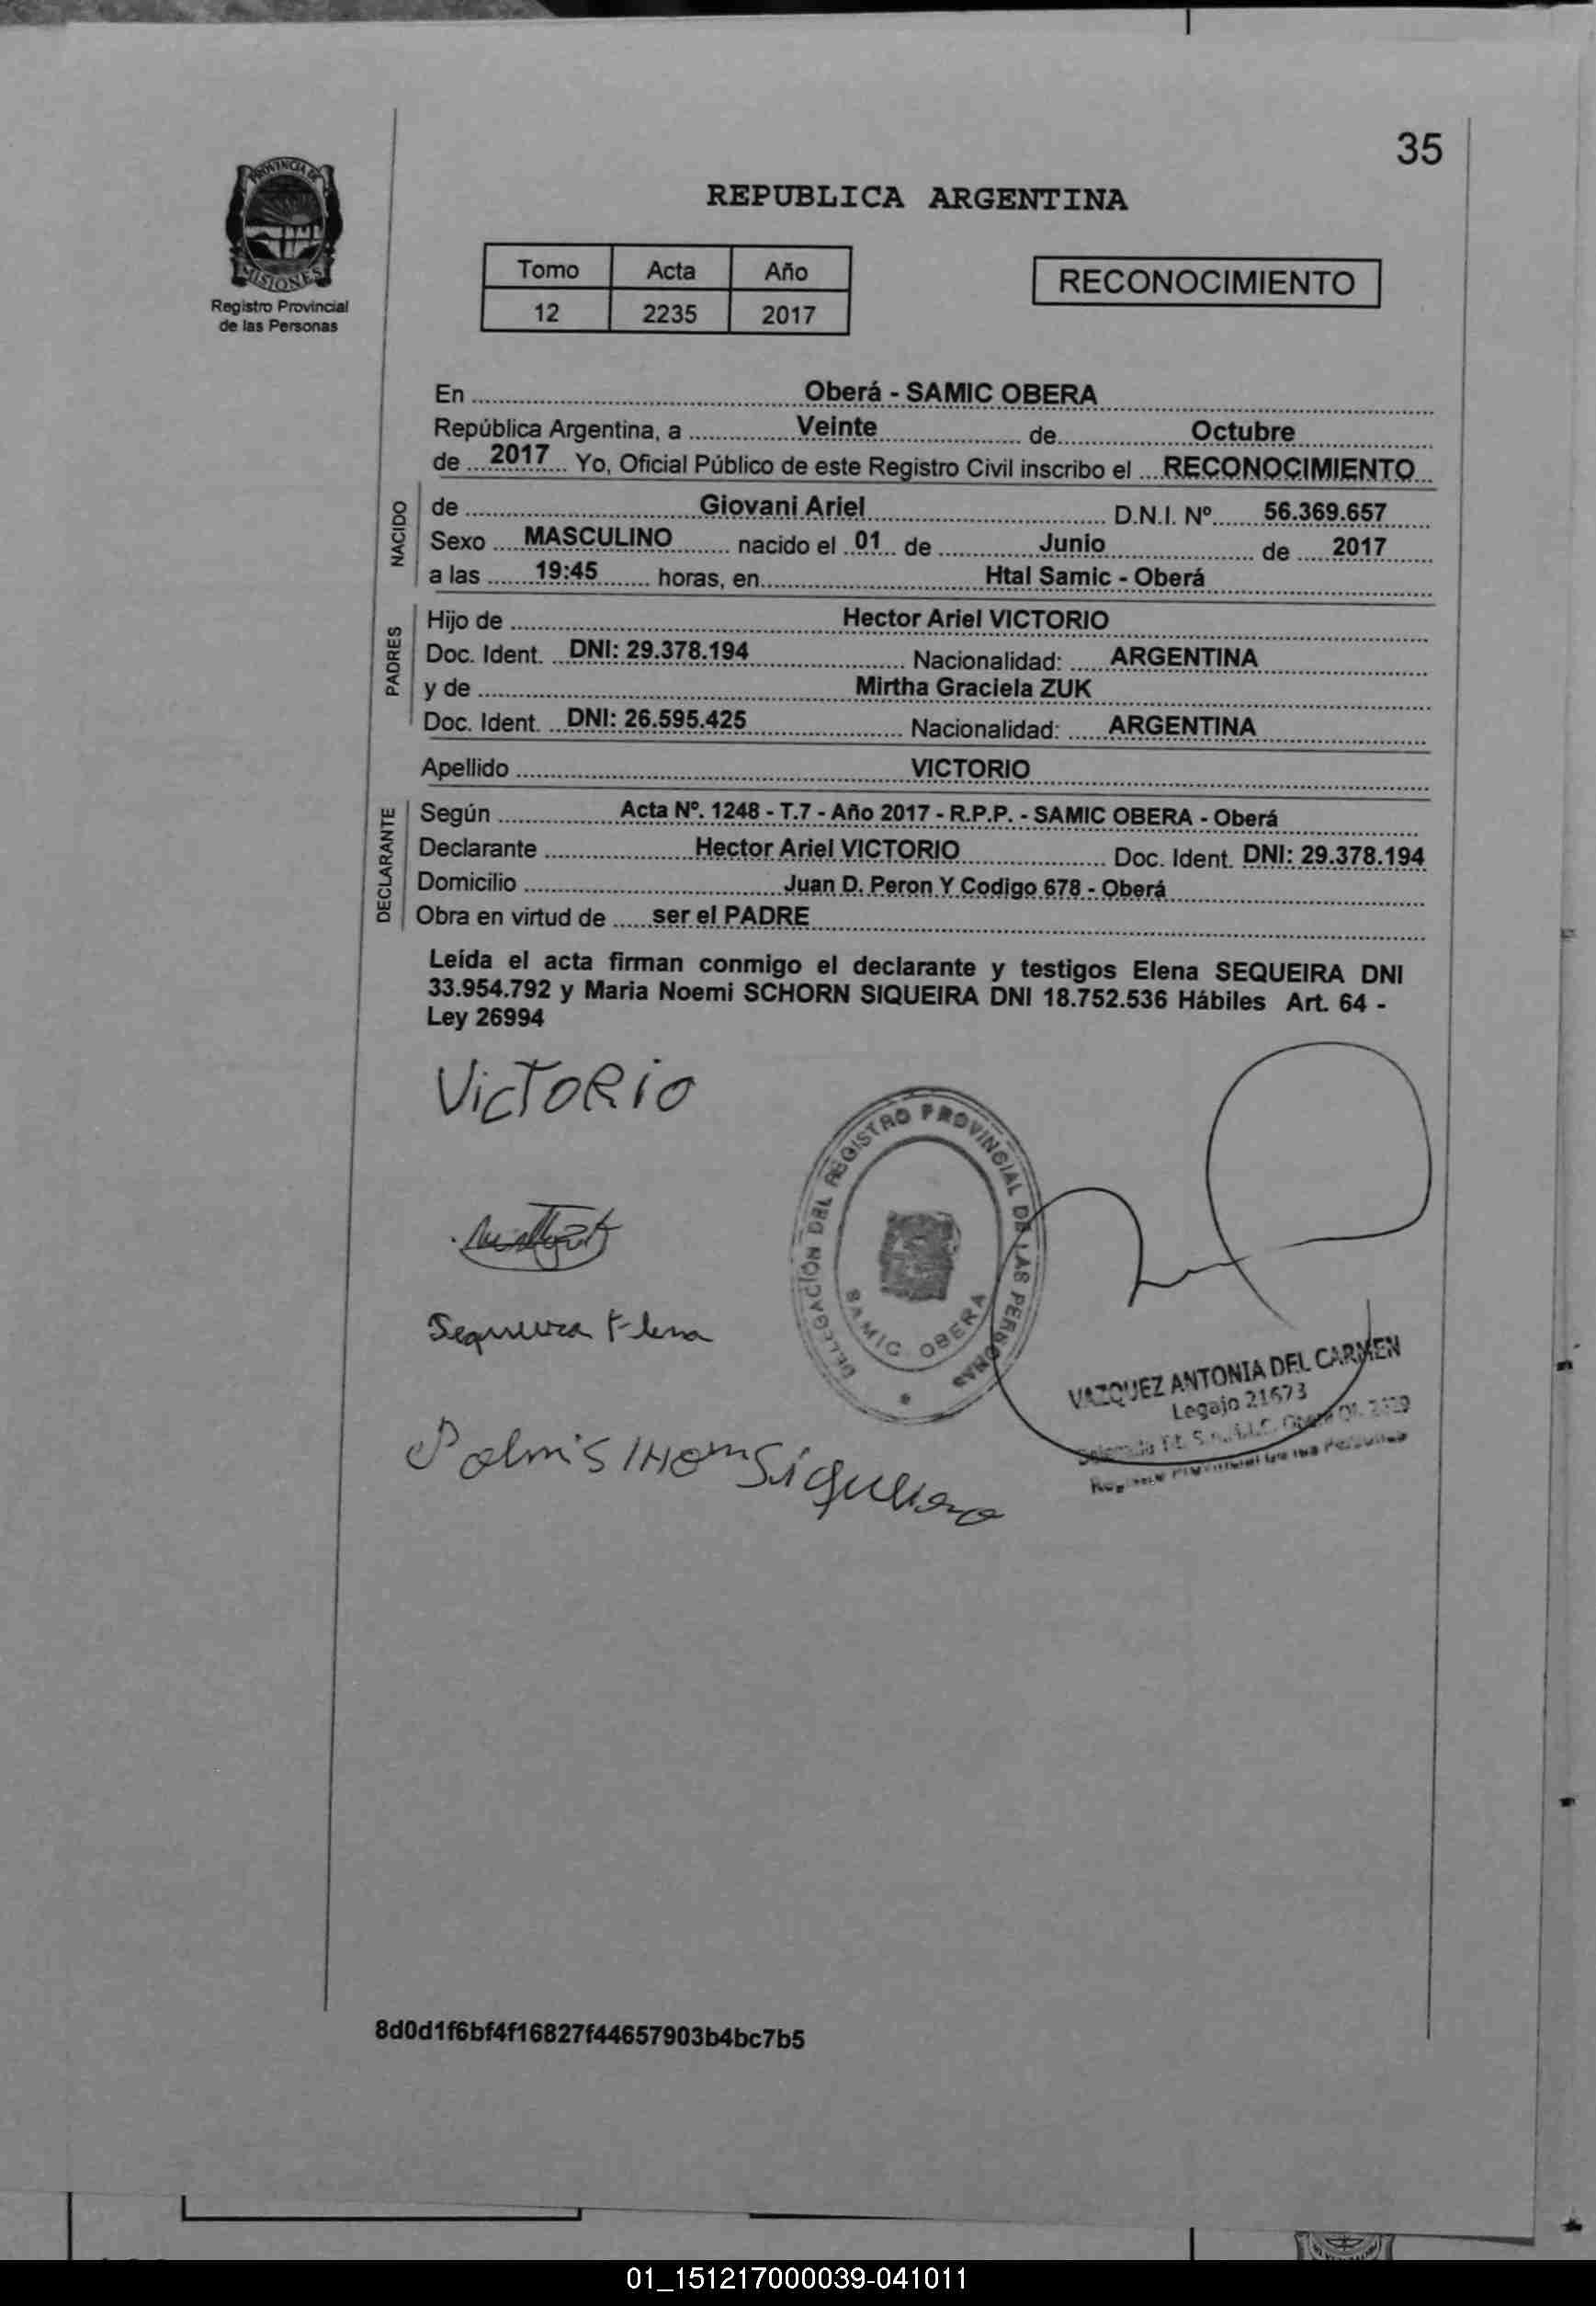 35
PROVINCIA DE
MISIONES
Registro Provincial
de las Personas
REPUBLICA ARGENTINA
Tomo Acta Año
12 2235 2017
RECONOCIMIENTO
En Oberá - SAMIC OBERA
República Argentina, a Veinte de Octubre
de 2017 Yo, Oficial Público de este Registro Civil inscribo el RECONOCIMIENTO
NACIDO
de Giovani Ariel D.N.I. Nº 56.369.657
Sexo MASCULINO nacido el 01 de Junio de 2017
a las 19:45 horas, en Htal Samic - Oberá
PADRES
Hijo de Hector Ariel VICTORIO
Doc. Ident. DNI: 29.378.194 Nacionalidad: ARGENTINA
y de Mirtha Graciela ZUK
Doc. Ident. DNI: 26.595.425 Nacionalidad: ARGENTINA
Apellido VICTORIO
DECLARANTE
Según Acta Nº. 1248 - T.7 - Año 2017 - R.P.P. - SAMIC OBERA - Oberá
Declarante Hector Ariel VICTORIO Doc. Ident. DNI: 29.378.194
Domicilio Juan D. Peron Y Codigo 678 - Oberá
Obra en virtud de ser el PADRE
Leída el acta firman conmigo el declarante y testigos Elena SEQUEIRA DNI
33.954.792 y Maria Noemi SCHORN SIQUEIRA DNI 18.752.536 Hábiles Art. 64 -
Ley 26994
VICTORIO
DELEGACIÓN DEL REGISTRO PROVINCIAL DE LAS PERSONAS
SAMIC OBERA
Sequeira Elena
VAZQUEZ ANTONIA DEL CARMEN
Legajo 21673
8d0d1f6bf4f16827f44657903b4bc7b5
01_151217000039-041011